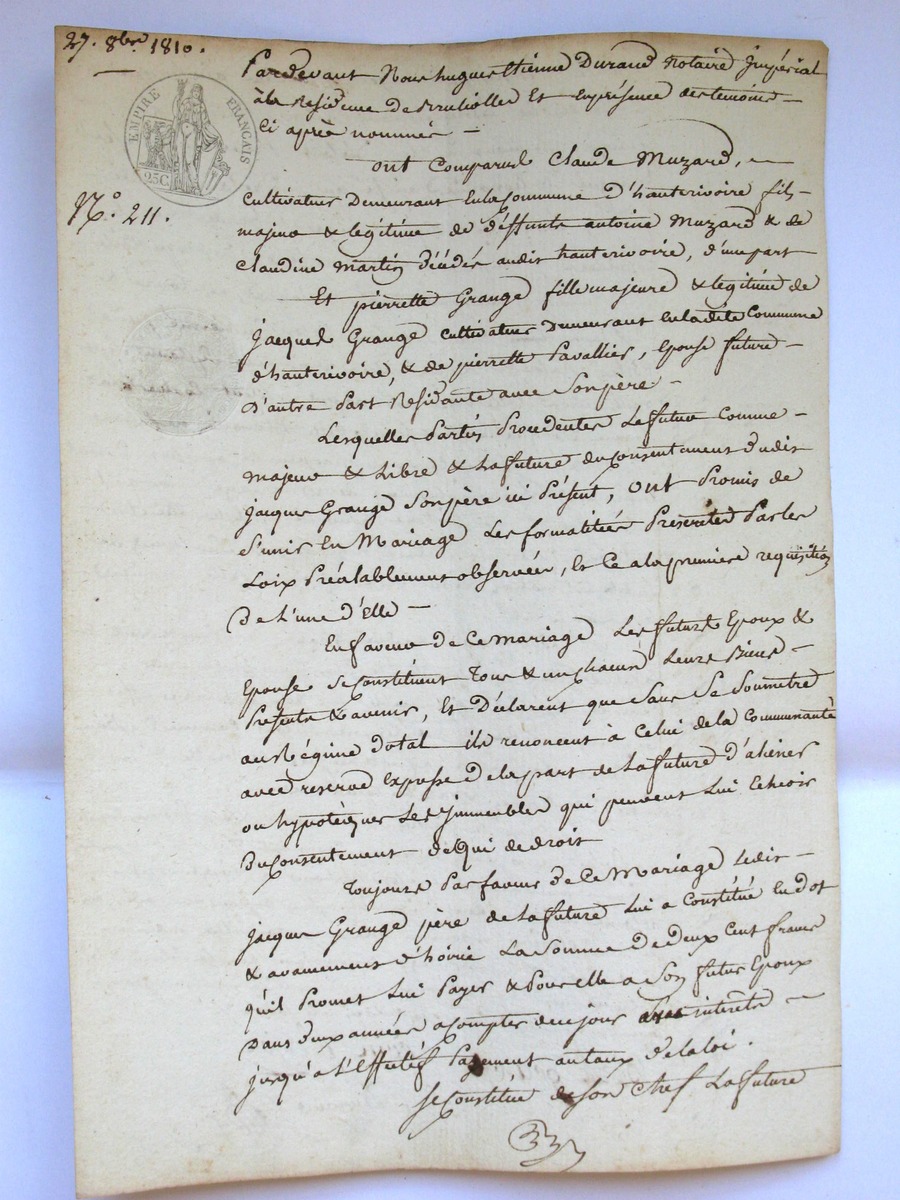 27. 8bre 1810.
EMPIRE FRANÇAIS
25C
N.o 211.
Pardevant Nous hugues Etienne Durand Notaire Impérial
à la Residence De Brullolles Et En présence des temoins
Ci après nommés
ont Comparus Claude Muzard,
Cultivateur Demeurant En la Commune d'hauterivoire fils
majeur & legitime de deffunts antoine Muzard & de
Claudine Martin décédés audit hauterivoire, d'une part
Et pierrette Grange fille majeure & legitime de
Jacques Grange Cultivateur Demeurant En la dite Commune
d'hauterivoire, & de pierrette Pavallier, Epouse future
D'autre Part Résidante avec Son père
Lesquelles Parties Procedentes Le futur Comme
majeur & Libre & La future du Consentement dudit
Jacques Grange Son père ici Présent, ont Promis de
S'unir En Mariage Les formalitées Prescrites Par les
Loix Préalablement observées, Et Ce a la première requisition
De L'une d'Elle
En faveur de Ce mariage Les futurs Epoux &
Epouse Se Constituent Tous & un chacun Leurs Biens
Présents & avenir, Et Déclarent que Sans Se Soumettre
au Régime Dotal ils renoncent à Celui de la Communauté
avec reserve Expresse de la part de La future d'aliéner
ou hypotéquer Les Immeubles qui peuvent Lui Echeoir
du Consentement de qui de droit
Toujours Par faveur de Ce Mariage Ledit
Jacques Grange père de La future Lui a Constitué En dot
& avancement d'hoirie La Somme de Deux Cent francs
qu'il Promet Lui Payer & Pour elle a Son futur Epoux
Dans deux années a Compter de ce jour avec interets
jusqu'a l'Effectif Payement au taux de la loi.
Se Constitue de Son Chef La future